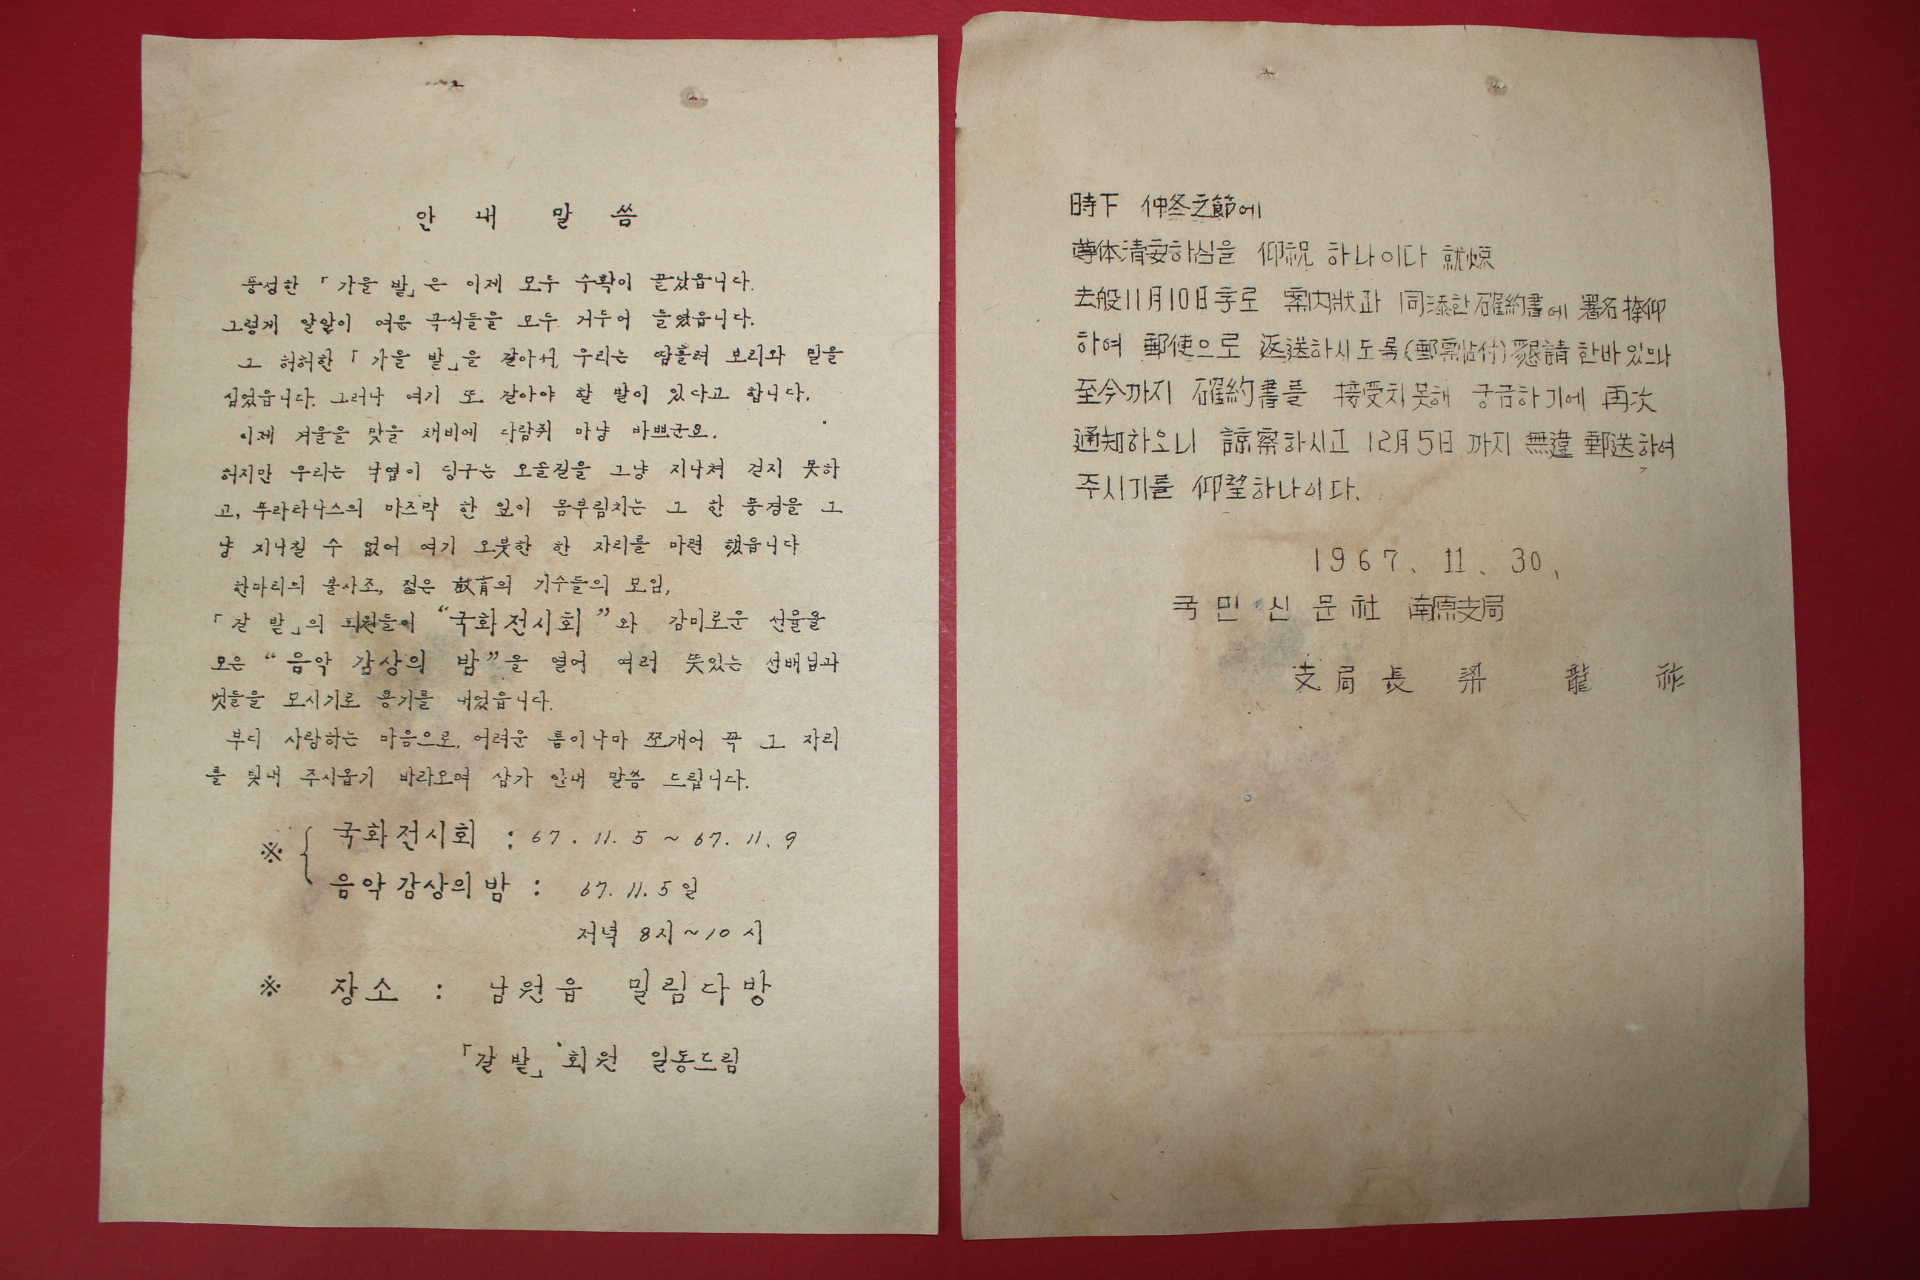 안 내 말 씀
풍성한 「가을 밭」은 이제 모두 수확이 끝났읍니다.
그렇게 알알이 여문 곡식들을 모두 거두어 들였읍니다.
그 허허한 「가을 밭」을 갈아서 우리는 땀흘려 보리와 밀을
심었읍니다. 그러나 여기 또 갈아야 할 밭이 있다고 합니다.
이제 겨울을 맞을 채비에 다람쥐 마냥 바쁘군요.
허지만 우리는 낙엽이 딩구는 오솔길을 그냥 지나쳐 걷지 못하
고, 푸라타나스의 마즈막 한 잎이 몸부림치는 그 한 풍경을 그
냥 지나칠 수 없어 여기 오붓한 한 자리를 마련 했읍니다
한마리의 불사조, 젊은 敎育의 기수들의 모임,
「갈 밭」의 회원들이 “국화전시회”와 감미로운 선율을
모은 “음악 감상의 밤”을 열어 여러 뜻있는 선배님과
벗들을 모시기로 용기를 내었읍니다.
부디 사랑하는 마음으로, 어려운 틈이나마 쪼개어 꼭 그 자리
를 빛내 주시옵기 바라오며 삼가 안내 말씀 드립니다.
※ { 국화전시회 : 67. 11. 5 ~ 67. 11. 9
음악감상의 밤 : 67. 11. 5일
저녁 8시~10시
※ 장소 : 남원읍 밀림다방
「갈 밭」 회원 일동드림
時下 仲冬之節에
尊体淸安하심을 仰祝 하나이다 就煩
去般11月10日字로 案內狀과 同添한 確約書에 署名捺仰
하여 郵便으로 返送하시도록(郵票帖付)懇請한바있으나
至今까지 確約書를 接受치못해 궁금하기에 再次
通知하오니 諒察하시고 12月5日까지 無違 郵送하여
주시기를 仰望하나이다.
1967. 11. 30.
국민신문社 南原支局
支局長 梁 龍 祚